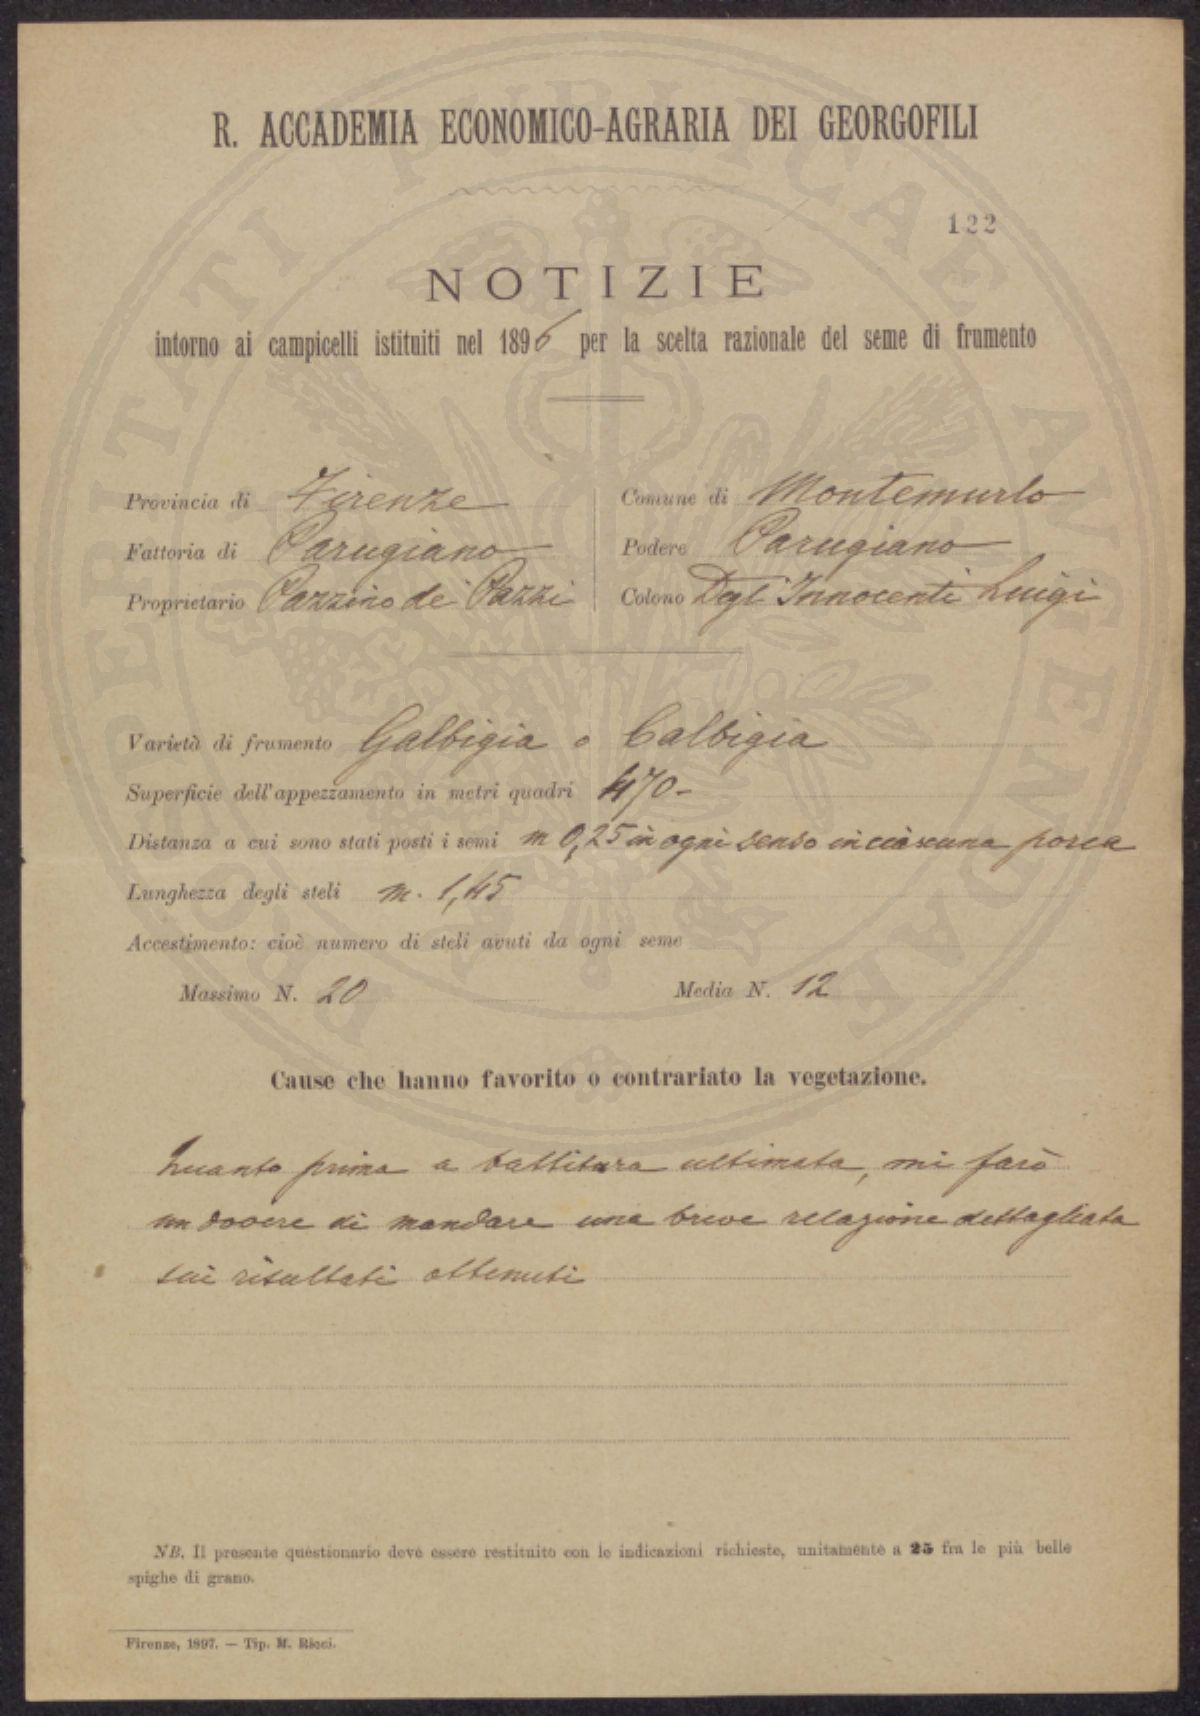 R. ACCADEMIA ECONOMICO-AGRARIA DEI GEORGOFILI
122
NOTIZIE
intorno ai campicelli istituiti nel 1896 per la scelta razionale del seme di frumento
Provincia di Firenze
Comune di Montemurlo
Fattoria di Parugiano
Podere Parugiano
Proprietario Pazzino de' Pazzi
Colono Degl' Innocenti Luigi
Varietà di frumento Galbigia o Calbigia
Superficie dell'appezzamento in metri quadri 470-
Distanza a cui sono stati posti i semi m 0,25 in ogni senso in ciascuna porca
Lunghezza degli steli m. 1,45
Accestimento: cioè numero di steli avuti da ogni seme
Massimo N. 20 Media N. 12
Cause che hanno favorito o contrariato la vegetazione.
Quanto prima a battitura ultimata, mi farò
un dovere di mandare una breve relazione dettagliata
sui risultati ottenuti
NB. Il presente questionario deve essere restituito con le indicazioni richieste, unitamente a 25 fra le più belle
spighe di grano.
Firenze, 1897. — Tip. M. Ricci.
PROSPERITATI PUBLICAE AUGENDAE